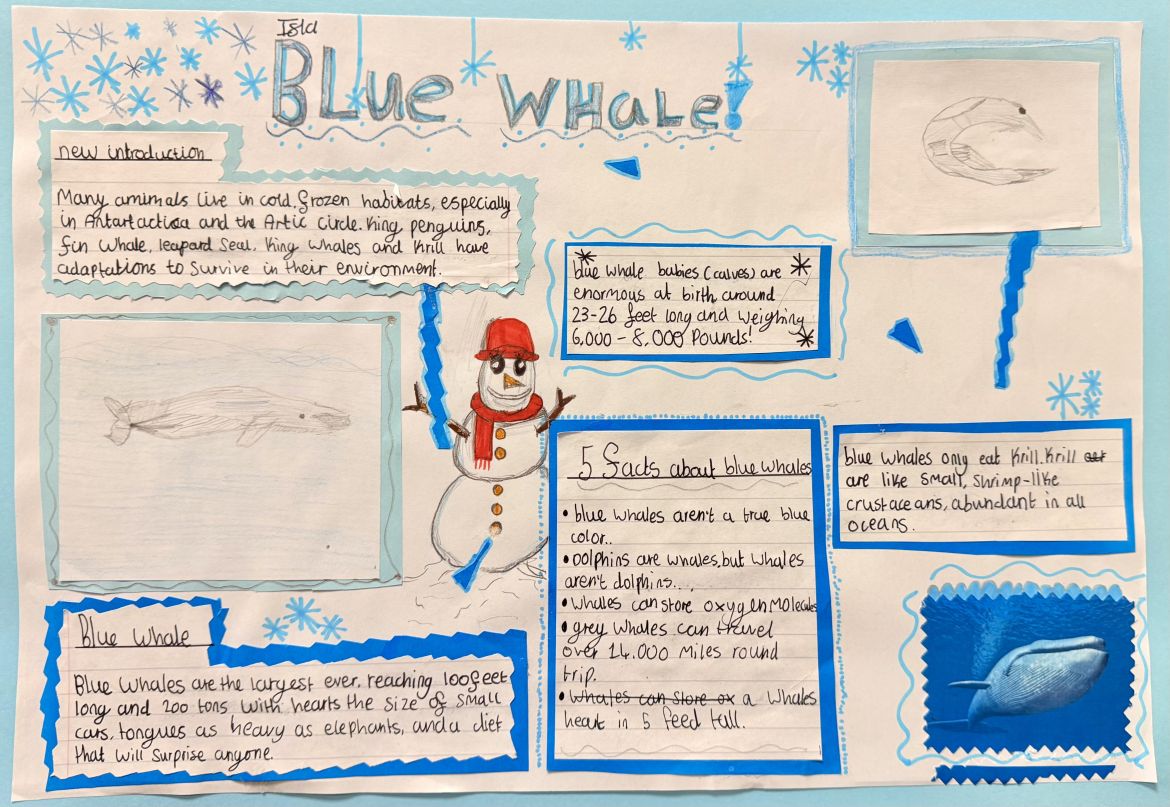 Isla
BLue WHaLe!
new introduction
Many amimals live in cold, frozen habitats, especially
in Antartactica and the Artic Circle. King penguins,
fin whale, leapard seal, King whales and Krill have
adaptations to Survive in their environment.
blue whale babies (calves) are
enormous at birth around
23-26 feet long and weighing
6,000 - 8,000 Pounds!
5 facts about blue whales
• blue whales aren't a true blue
color..
• Dolphins are whales, but whales
aren't dolphins...
• whales can store oxygen molecules
• grey whales can travel
over 14.000 miles round
trip.
• whales can store ox a whales
heart in 5 feed tall.
blue whales only eat Krill. Krill
are like small, shrimp-like
crustaceans, abundant in all
oceans.
Blue whale
Blue whales are the largest ever, reaching 100feet
long and 200 tons with hearts the size of small
cars, tongues as heavy as elephants, and a diet
that will surprise anyone.